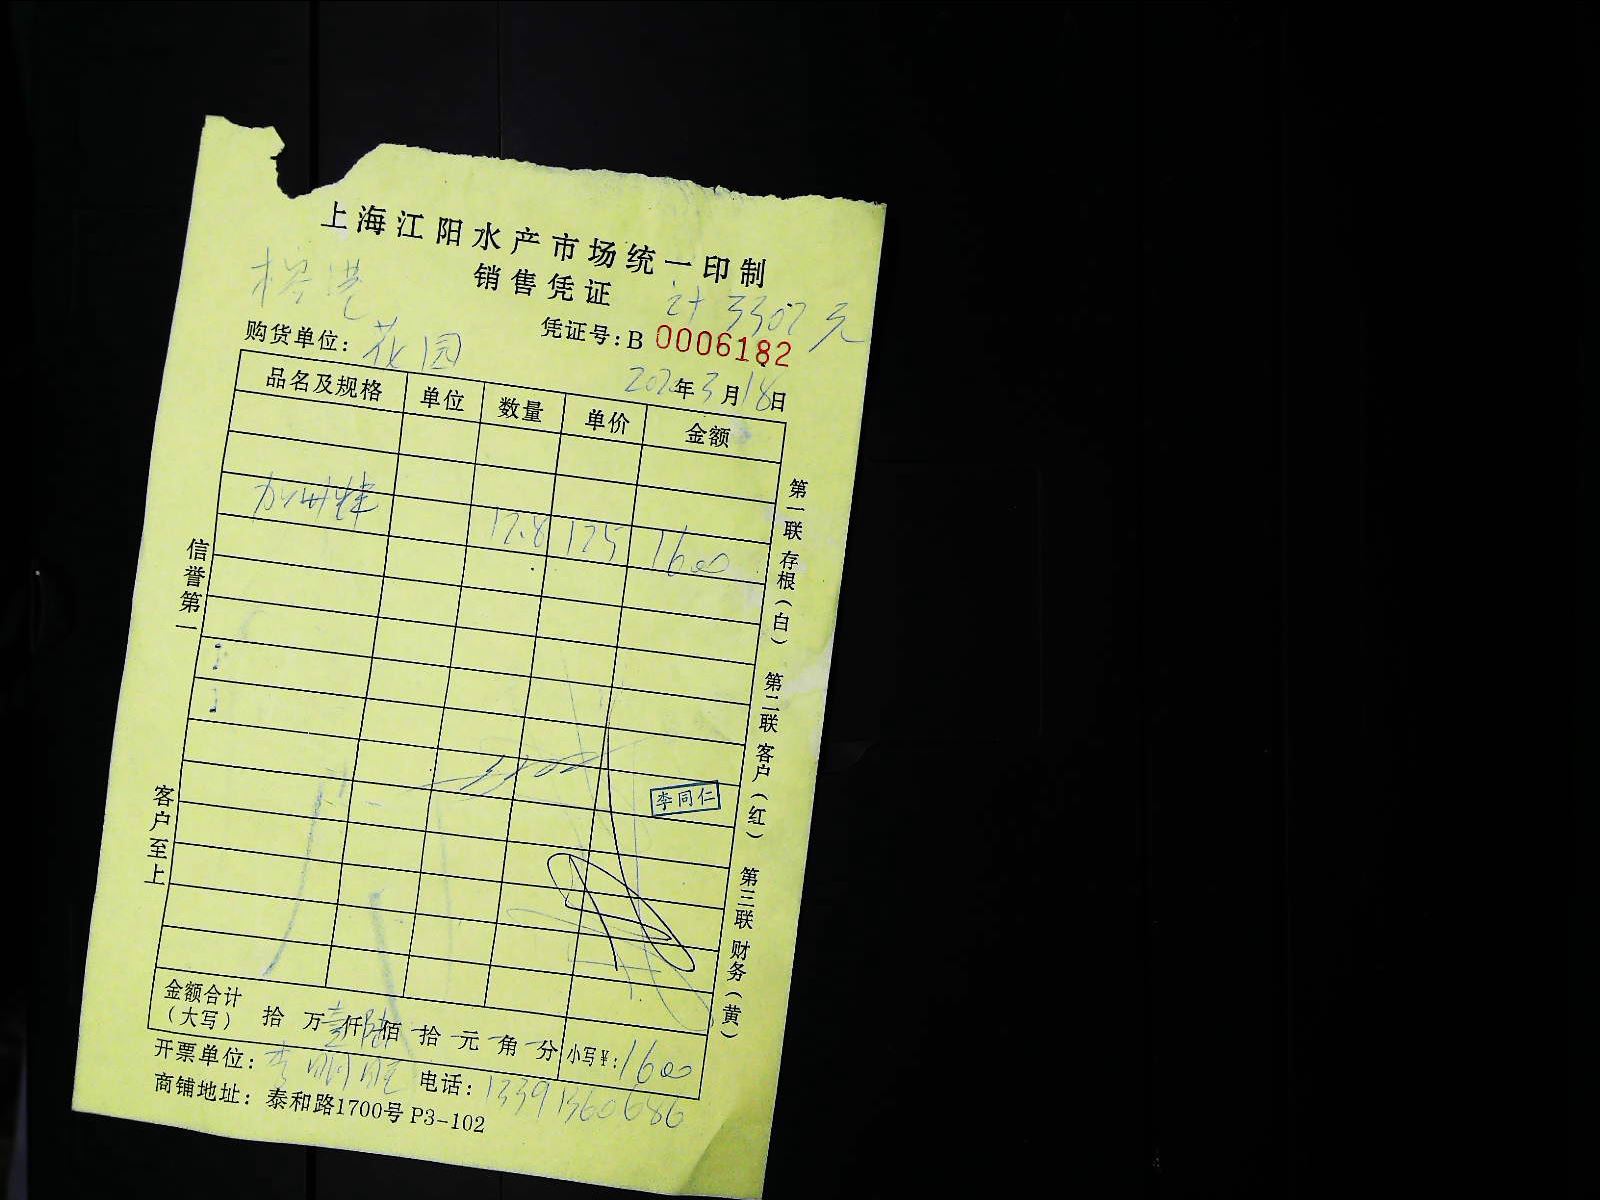 上海江阳水产市场统一印制
销售凭证
计3307元
凭证号：B 0006182
购货单位：花园
202年3月18日
品名及规格 单位 数量 单价 金额
加州 12.8 125 1600
信誉第一
客户至上
第一联 存根（白） 第二联 客户（红） 第三联 财务（黄）
李同仁
金额合计（大写） 拾 万壹仟陆佰 拾 元 角 分 小写¥：1600
开票单位：李明 电话：13391360686
商铺地址：泰和路1700号 P3-102